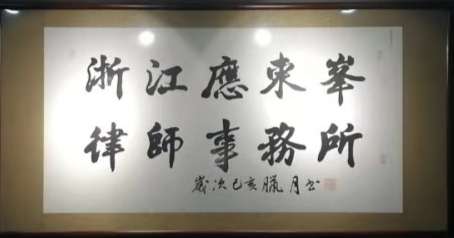 浙江應東峯
律師事務所
歲次己亥臘月書